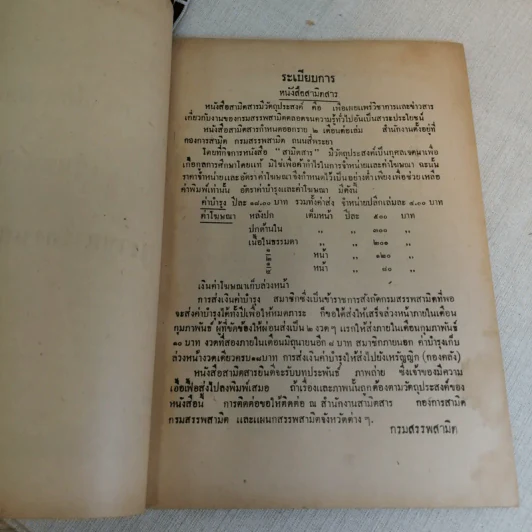 ระเบียบการ
หนังสือสามิตสาร
หนังสือสามิตสารมีวัตถุประสงค์ คือ เพื่อเผยแพร่วิชาการและข่าวสาร
เกี่ยวกับงานของกรมสรรพสามิตตลอดจนความรู้ทั่วไปอันเป็นสาระประโยชน์
หนังสือสามิตสารกำหนดออกราย ๒ เดือนต่อเล่ม สำนักงานตั้งอยู่ที่
กองการสามิต กรมสรรพสามิต ถนนสี่พระยา
โดยที่กิจการหนังสือ "สามิตสาร" มีวัตถุประสงค์เป็นกุศลเจตนาเพื่อ
เกื้อกูลการศึกษาโดยแท้ มิใช่เพื่อค้ากำไรในการจำหน่ายและค่าโฆษณา ฉะนั้น
ราคาจำหน่ายและอัตราค่าโฆษณาจึงกำหนดไว้เป็นอย่างต่ำเพียงเพื่อช่วยเหลือ
ค่าพิมพ์เท่านั้น อัตราค่าบำรุงและค่าโฆษณา มีดังนี้
ค่าบำรุง ปีละ ๑๘.๐๐ บาท รวมทั้งค่าส่ง จำหน่ายปลีกเล่มละ ๔.๐๐ บาท
ค่าโฆษณา หลังปก เต็มหน้า ปีละ ๕๐๐ บาท
ปกด้านใน " " ๓๐๐ "
เนื้อในธรรมดา " " ๒๐๑ "
๑/๒ หน้า " ๑๒๐ "
หน้า " ๘๐ "
เงินค่าโฆษณาเก็บล่วงหน้า
การส่งเงินค่าบำรุง สมาชิกซึ่งเป็นข้าราชการสังกัดกรมสรรพสามิตที่พอ
จะส่งค่าบำรุงได้ทั้งปีเพื่อให้หมดภาระ ก็ขอให้ส่งให้เสร็จล่วงหน้าภายในเดือน
กุมภาพันธ์ ผู้ที่ขัดข้องให้ผ่อนส่งเป็น ๒ งวดๆ แรกให้ส่งภายในเดือนกุมภาพันธ์
๑๐ บาท งวดที่สองภายในเดือนมิถุนายนอีก ๘ บาท สมาชิกภายนอก ค่าบำรุงเก็บ
ล่วงหน้างวดเดียวครบ๑๘บาท การส่งเงินค่าบำรุงให้ส่งไปยังเหรัญญิก (กองคลัง)
หนังสือสามิตสารยินดีจะรับบทประพันธ์ ภาพถ่าย ซึ่งเจ้าของมีความ
เอื้อเฟื้อส่งไปลงพิมพ์เสมอ ถ้าเรื่องและภาพนั้นถูกต้องตามวัตถุประสงค์ของ
หนังสือนี้ การติดต่อขอให้ติดต่อ ณ สำนักงานสามิตสาร กองการสามิต
กรมสรรพสามิต และแผนกสรรพสามิตจังหวัดต่าง ๆ.
กรมสรรพสามิต